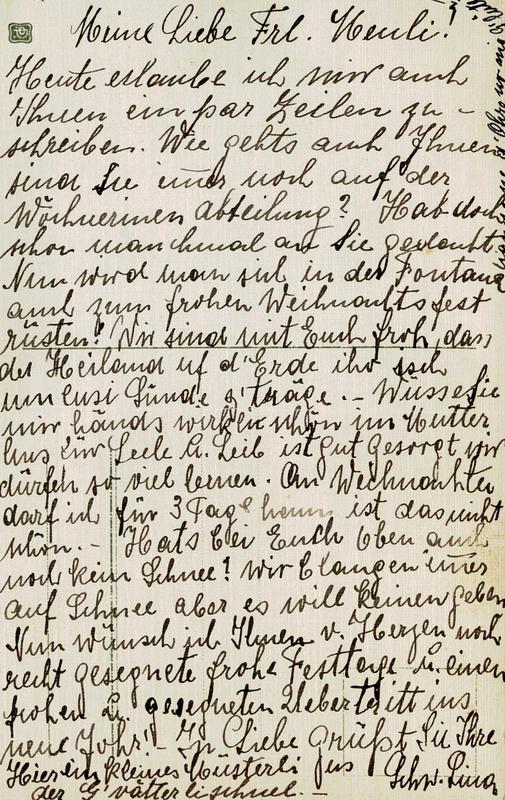 Meine Liebe Frl. Heuli!
Heute erlaube ich mir auch
Ihnen ein par Zeilen zu -
schreiben. Wie gehts auch Ihnen
sind Sie imer noch auf der
Wöchnerinen Abteilung? Hab doch
schon manchmal an Sie gedacht
Nun wird man sich in der Fontana
auch zum frohen Weihnachtsfest
rüsten! Wir sind mit Euch froh, das
der Heiland uf d'Erde ihr isch
um eusi Sünde z'träge. - Wüsse Sie
mir händs wirklich schön im Mutter
hus für Seele u. Leib ist gut gesorgt wir
dürfen so viel lernen. An Weihnachten
darf ich für 3 Tage heim ist das nicht
schön. - Hats bei Euch Oben auch
noch kein Schnee? Wir blangen imer
auf Schnee aber es will keinen geben
Nun wünsch ich Ihnen v. Herzen noch
recht gesegnete frohe Festtage u. einen
frohen u. gesegneten Uebertritt ins
neue Johr! - In Liebe grüßt Sie Ihre
Hier ein kleines Müsterli Schw. Lina
der G'vätterlischuel. -